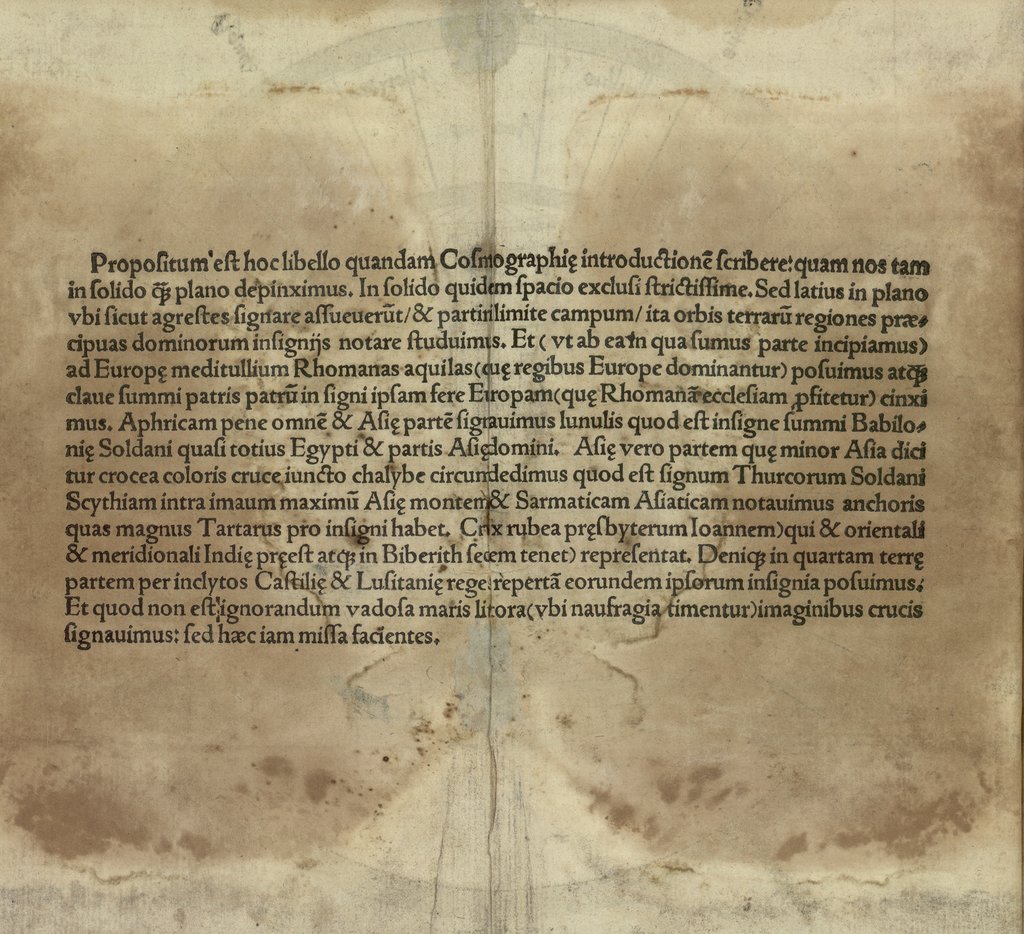 Propositum est hoc libello quandam Coſmographię introductionē ſcribere: quam nos tam
in ſolido q̃ꝫ plano depinximus. In ſolido quidem ſpacio excluſi ſtrictiſſime. Sed latius in plano
vbi ſicut agreſtes ſignare aſſueuerūt/ & partiri limite campum/ ita orbis terrarū regiones præ⸗
cipuas dominorum inſignijs notare ſtuduimus. Et ( vt ab ea in qua ſumus parte incipiamus)
ad Europę meditullium Rhomanas aquilas (quę regibus Europe dominantur) poſuimus atqꝫ
claue ſummi patris patrū in ſigni ipſam fere Europam (quę Rhomanā eccleſiam ꝓfitetur) cinxi
mus. Aphricam pene omnē & Aſię partē ſignauimus lunulis quod eſt inſigne ſummi Babilo⸗
nię Soldani quaſi totius Egypti & partis Aſię domini. Aſię vero partem quę minor Aſia dici
tur crocea coloris cruce iuncto chalybe circundedimus quod eſt ſignum Thurcorum Soldani
Scythiam intra imaum maximū Aſię montem & Sarmaticam Aſiaticam notauimus anchoris
quas magnus Tartarus pro inſigni habet. Crux rubea pręſbyterum Ioannem) qui & orientali
& meridionali Indię pręeſt atqꝫ in Biberith ſedem tenet) repreſentat. Deniqꝫ in quartam terrę
partem per inclytos Caſtilię & Luſitanię reges repertā eorundem ipſorum inſignia poſuimus.
Et quod non eſt ignorandum vadoſa maris litora (vbi naufragia timentur) imaginibus crucis
ſignauimus: ſed hæc iam miſſa facientes.